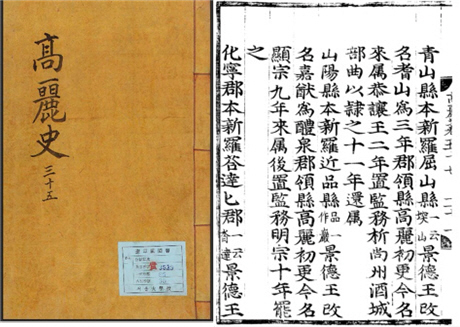 高麗史
三十五
青山縣本新羅屈山縣一云埃山景德王改
名耆山為三年郡領縣高麗初更今名
來屬恭讓王二年置監務析尚州酒城
部曲以隷之十一年還屬
山陽縣本新羅近品縣品一作巖景德王改
名嘉猷為醴泉郡領縣高麗初更今名
顯宗九年來屬後置監務明宗十年罷
之
化寧郡本新羅荅達匕郡一云沓達景德王